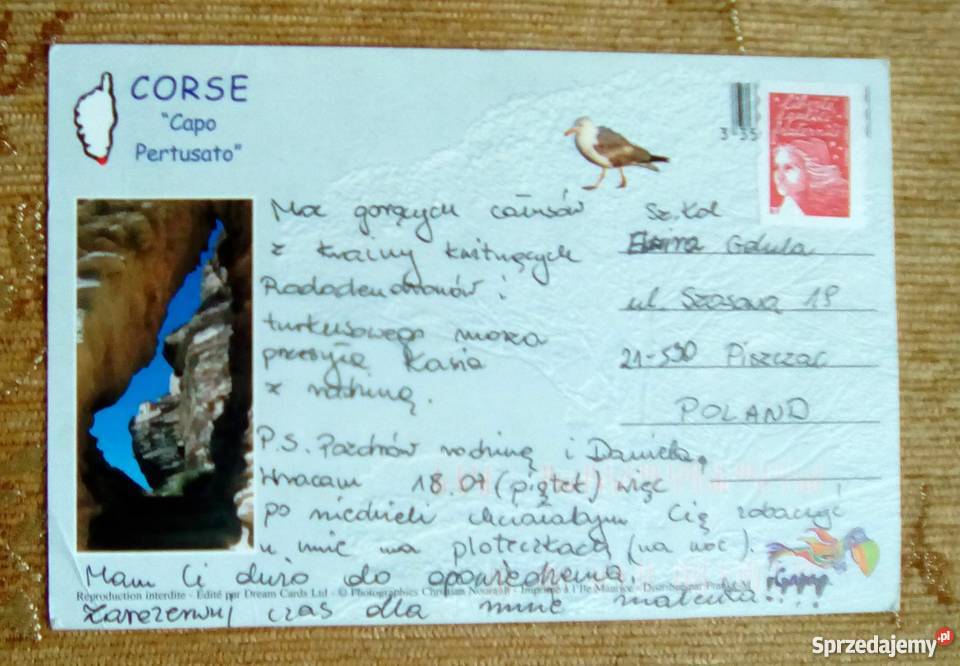 CORSE
"Capo
Pertusato"
3 35
Liberté
égalité
fraternité
Moc gorących całusów
z krainy kwitnących
Rododendronów i
turkusowego morza
przesyła Kasia
z rodziną.
P.S. Pozdrów rodzinę i Daniela,
Wracam 18.07 (piątek) więc
po niedzieli chciałabym Cię zobaczyć
u mnie na ploteczkach (na noc).
Mam Ci dużo do opowiedzenia.
Zarezerwuj czas dla mnie maleńka...
Sz.Kol
Gdula
ul. Szasową 19
21-530 Piszczac
POLAND
Reproduction interdite - Edité par Dream Cards Ltd - © Photographies Christian - Imprimé à l'Ile Maurice - Distribution
Sprzedajemy.pl